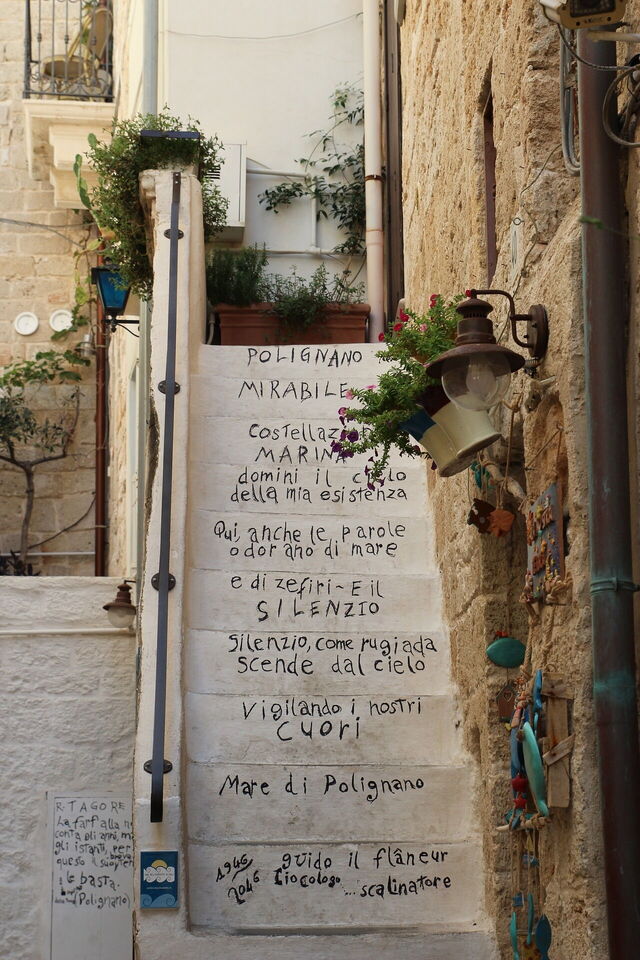 POLIGNANO
MIRABILE
Costellaz
MARINA
domini il cielo
della mia esistenza
Qui, anche le parole
odorano di mare
e di zefiri- E il
SILENZIO
Silenzio, come rugiada
Scende dal cielo
Vigilando i nostri
Cuori
Mare di Polignano
1946 guido il flâneur
2046 ...scalinatore
R. TAGORE
La farfalla n
conta gli anni, m
gli istanti, per
questo il suo
le basta.
(Polignano)